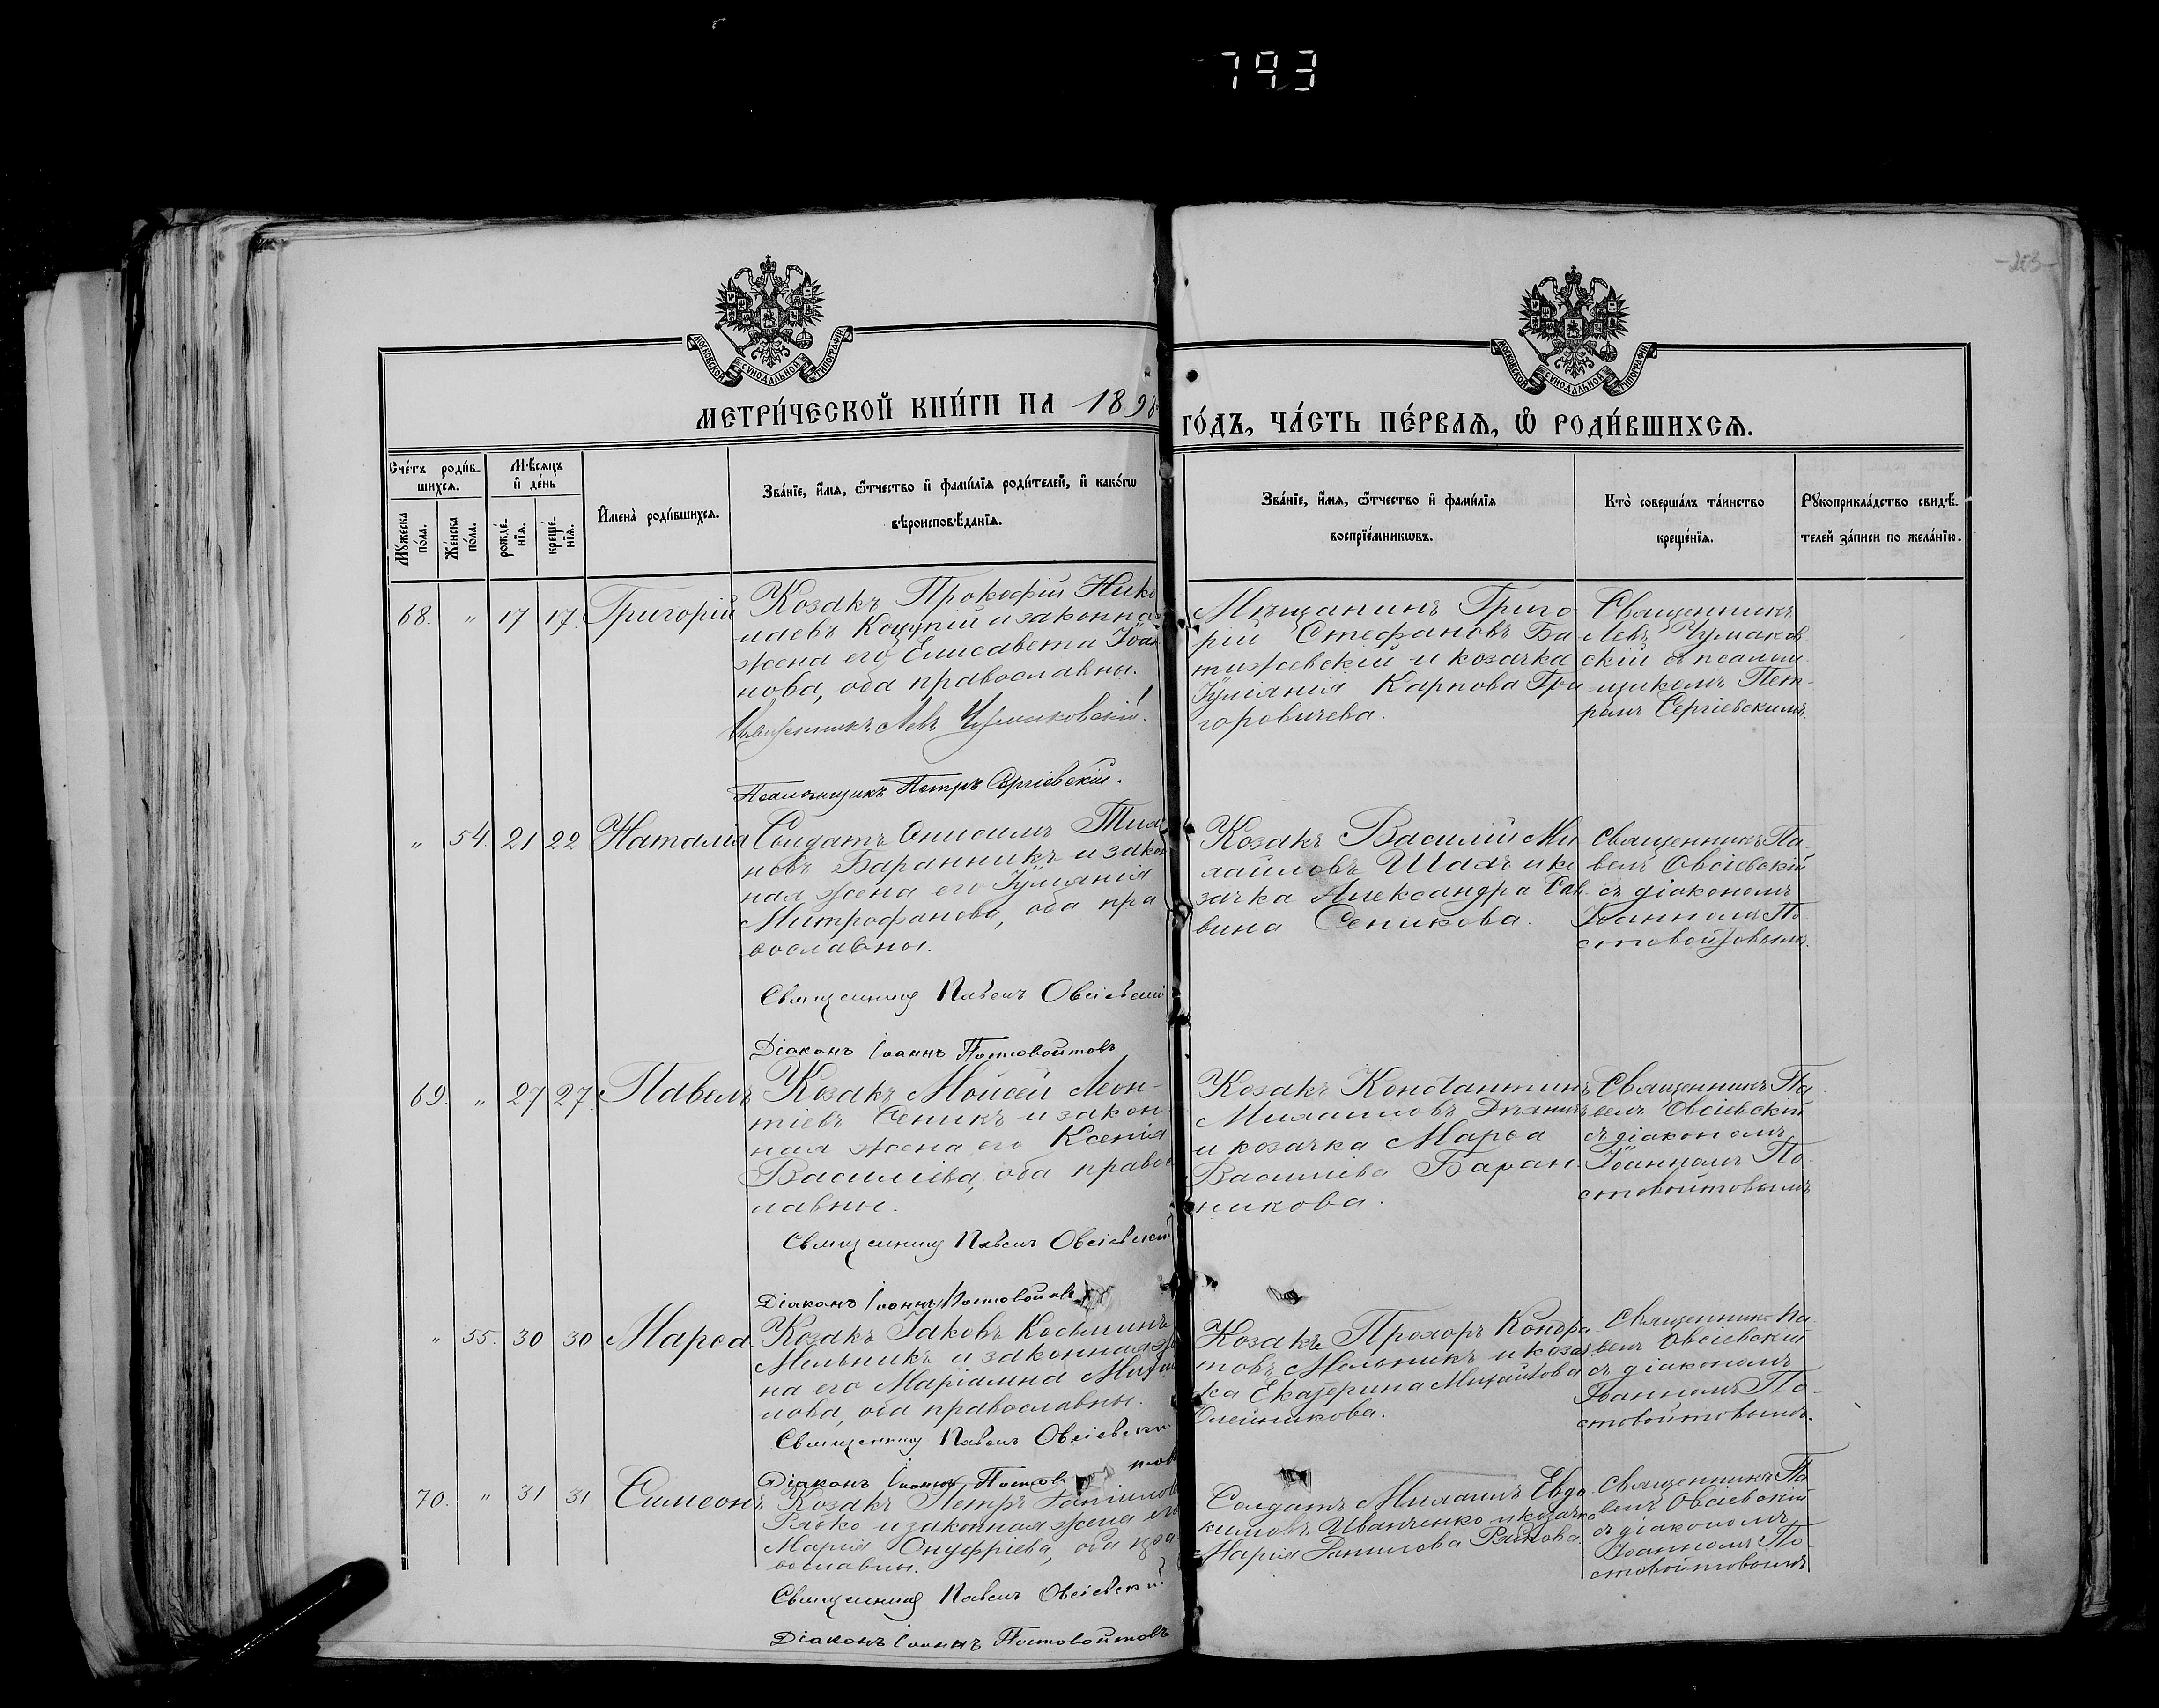 793
-203-
МОСКОВСКОЙ СѴНОДАЛЬНОЙ ТИПОГРАФІИ
МОСКОВСКОЙ СѴНОДАЛЬНОЙ ТИПОГРАФІИ
МЕТРИ́ЧЕСКОЙ КНИ́ГИ НА 1898
ГО́ДЪ, ЧА́СТЬ ПЕ́РВАѦ, Ѡ РОДИ́ВШИХСѦ.
Сче́тъ роди́в-
шихсѧ.
Мꙋ́жеска по́ла.
Же́нска по́ла.
Мѣ́сѧцъ
и҆ де́нь
рожде́-
нїѧ.
креще́-
нїѧ.
И҆мена̀ роди́вшихсѧ.
Зва́нїе, и҆́мѧ, ѻ҆́тчество и҆ фами́лїѧ роди́телей, и҆ како́гѡ
вѣроисповѣ́данїѧ.
Зва́нїе, и҆́мѧ, ѻ҆́тчество и҆ фами́лїѧ
воспрїе́мникѡвъ.
Кто̀ соверша́лъ та́инство
креще́нїѧ.
Рꙋкоприкла́дство свидѣ́-
телей за́писи по жела́нїю.
68. " 17 17. Григорій
Козакъ Прокофій Нико
лаевъ Коцупій и законна
жена его Елисавета Іоан
нова, оба православны.
Священникъ Левъ Чумаковскій.
Псаломщикъ Петръ Сергіевскій.
Мѣщанинъ Григо
рій Стефановъ Ба
тижевскій и козачка
Іуліанія Карпова Гри
горовичева.
Священникъ
Левъ Чумаков
скій съ псалом
щикомъ Пет-
ромъ Сергіевскимъ.
" 54. 21 22 Наталія
Солдатъ Онисимъ Тих
новъ Баранникъ и закон
ная жена его Іуліанія
Митрофанова, оба пра
вославны.
Священникъ Павелъ Овсіевскій
Діаконъ Іоаннъ Постовойтовъ
Козакъ Василій Ми
хайловъ Шахъ и ко
зачка Александра Сав
вина Сеникова.
Священникъ Па-
велъ Овсіевскій
съ діакономъ
Іоанномъ По-
стовойтовымъ.
69. " 27 27. Павелъ
Козакъ Моисей Леон-
тіевъ Сеникъ и закон-
ная жена его Ксенія
Василіева, оба правос
лавны.
Священникъ Павелъ Овсіевскій
Діаконъ Іоаннъ Постовойтовъ
Козакъ Константинъ
Михаиловъ
и козачка Марѳа
Василіева Баран-
никова.
Священникъ Па-
велъ Овсіевскій
съ діакономъ
Іоанномъ По-
стовойтовымъ
" 55. 30 30 Марѳа.
Козакъ Іаковъ Косьминъ
Мельникъ и законная же
на его Маріамна Михаи
лова, оба православны.
Священникъ Павелъ Овсіевскій
Діаконъ Іоаннъ Постовойтовъ
Козакъ Прохоръ Кондра
товъ Мельникъ и козач
ка Екатерина Михаилова
Олейникова.
Священникъ Па-
велъ Овсіевскій
съ діакономъ
Іоанномъ По-
стовойтовымъ.
70. " 31 31 Симеонъ
Козакъ Петръ Даниловъ
Рябко и законная жена его
Марія Онуфріева, оба пра
вославны.
Священникъ Павелъ Овсіевскій
Діаконъ Іоаннъ Постовойтовъ
Солдатъ Михаилъ Евдо
кимовъ Иванченко и козачка
Марія Данилова Рябкова.
Священникъ Па
велъ Овсіевскій
съ діакономъ
Іоанномъ По-
стовойтовымъ